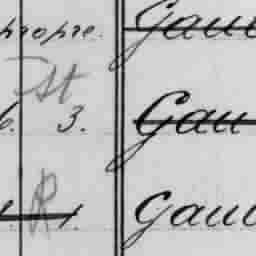 propre. Gau
St
6. 3. Gau
1. R 1. Gau